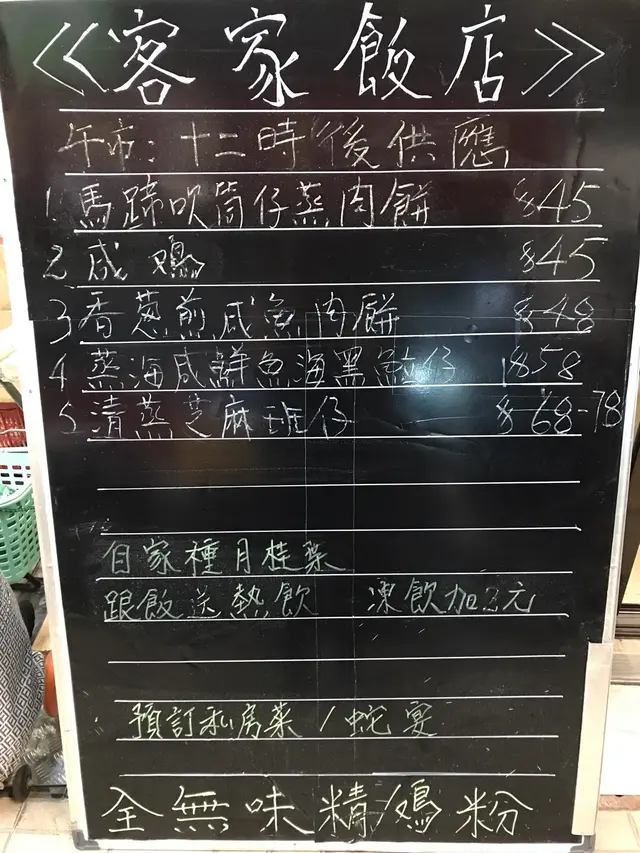 《客家飯店》
午市：十二時後供應
1. 馬蹄吹筒仔蒸肉餅 $45
2 咸鷄 $45
3 香葱煎咸魚肉餅 $48
4 蒸海咸鮮魚海黑鱲仔 $58
5 清蒸芝麻班仔 $68-78
自家種月桂葉
跟飯送熱飲 凍飲加3元
預訂私房菜/蛇宴
全無味精/鷄粉